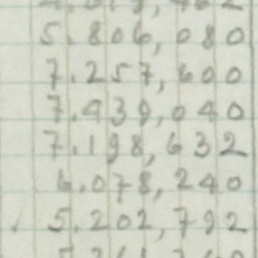 5.806,080
7.257,600
7.439,040
7.198,632
6.078,240
5.202,792